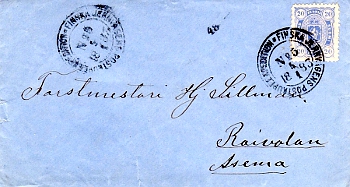 FINSKA JERNVÄGENS POSTKUPÉ EXPEDITION
No 5
48
FINSKA JERNVÄGENS POSTKUPÉ EXPEDITION
No 5
20 20
20 20
Forstmestari Hj Sillman
Raivolan
Asema